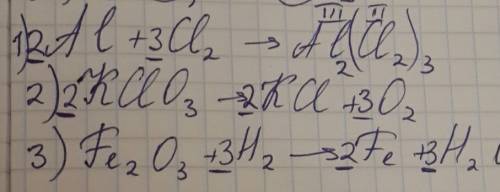 1) 2Al + 3Cl₂ → Al₂(Cl₂)₃ III II
2) 2KClO₃ → 2KCl + 3O₂
3) Fe₂O₃ + 3H₂ → 2Fe + 3H₂O